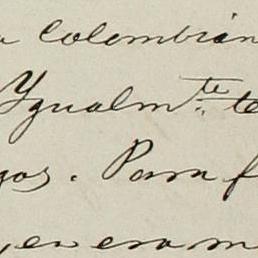 a Colombian
Ygualm.te te
gos. Para f
, en era m